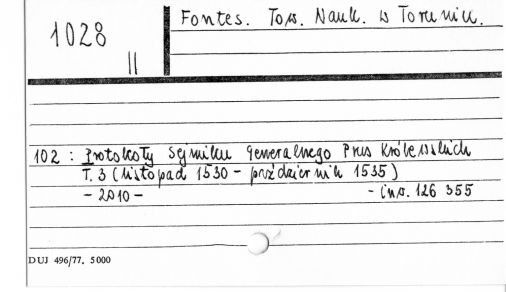 1028
II
Fontes. Tow. Nauk. w Toruniu.
102 : Protokoły Sejmiku Generalnego Prus Królewskich
T. 3 (listopad 1530 - październik 1535)
- 2010 -
- inw. 126 355
DUJ 496/77. 5000